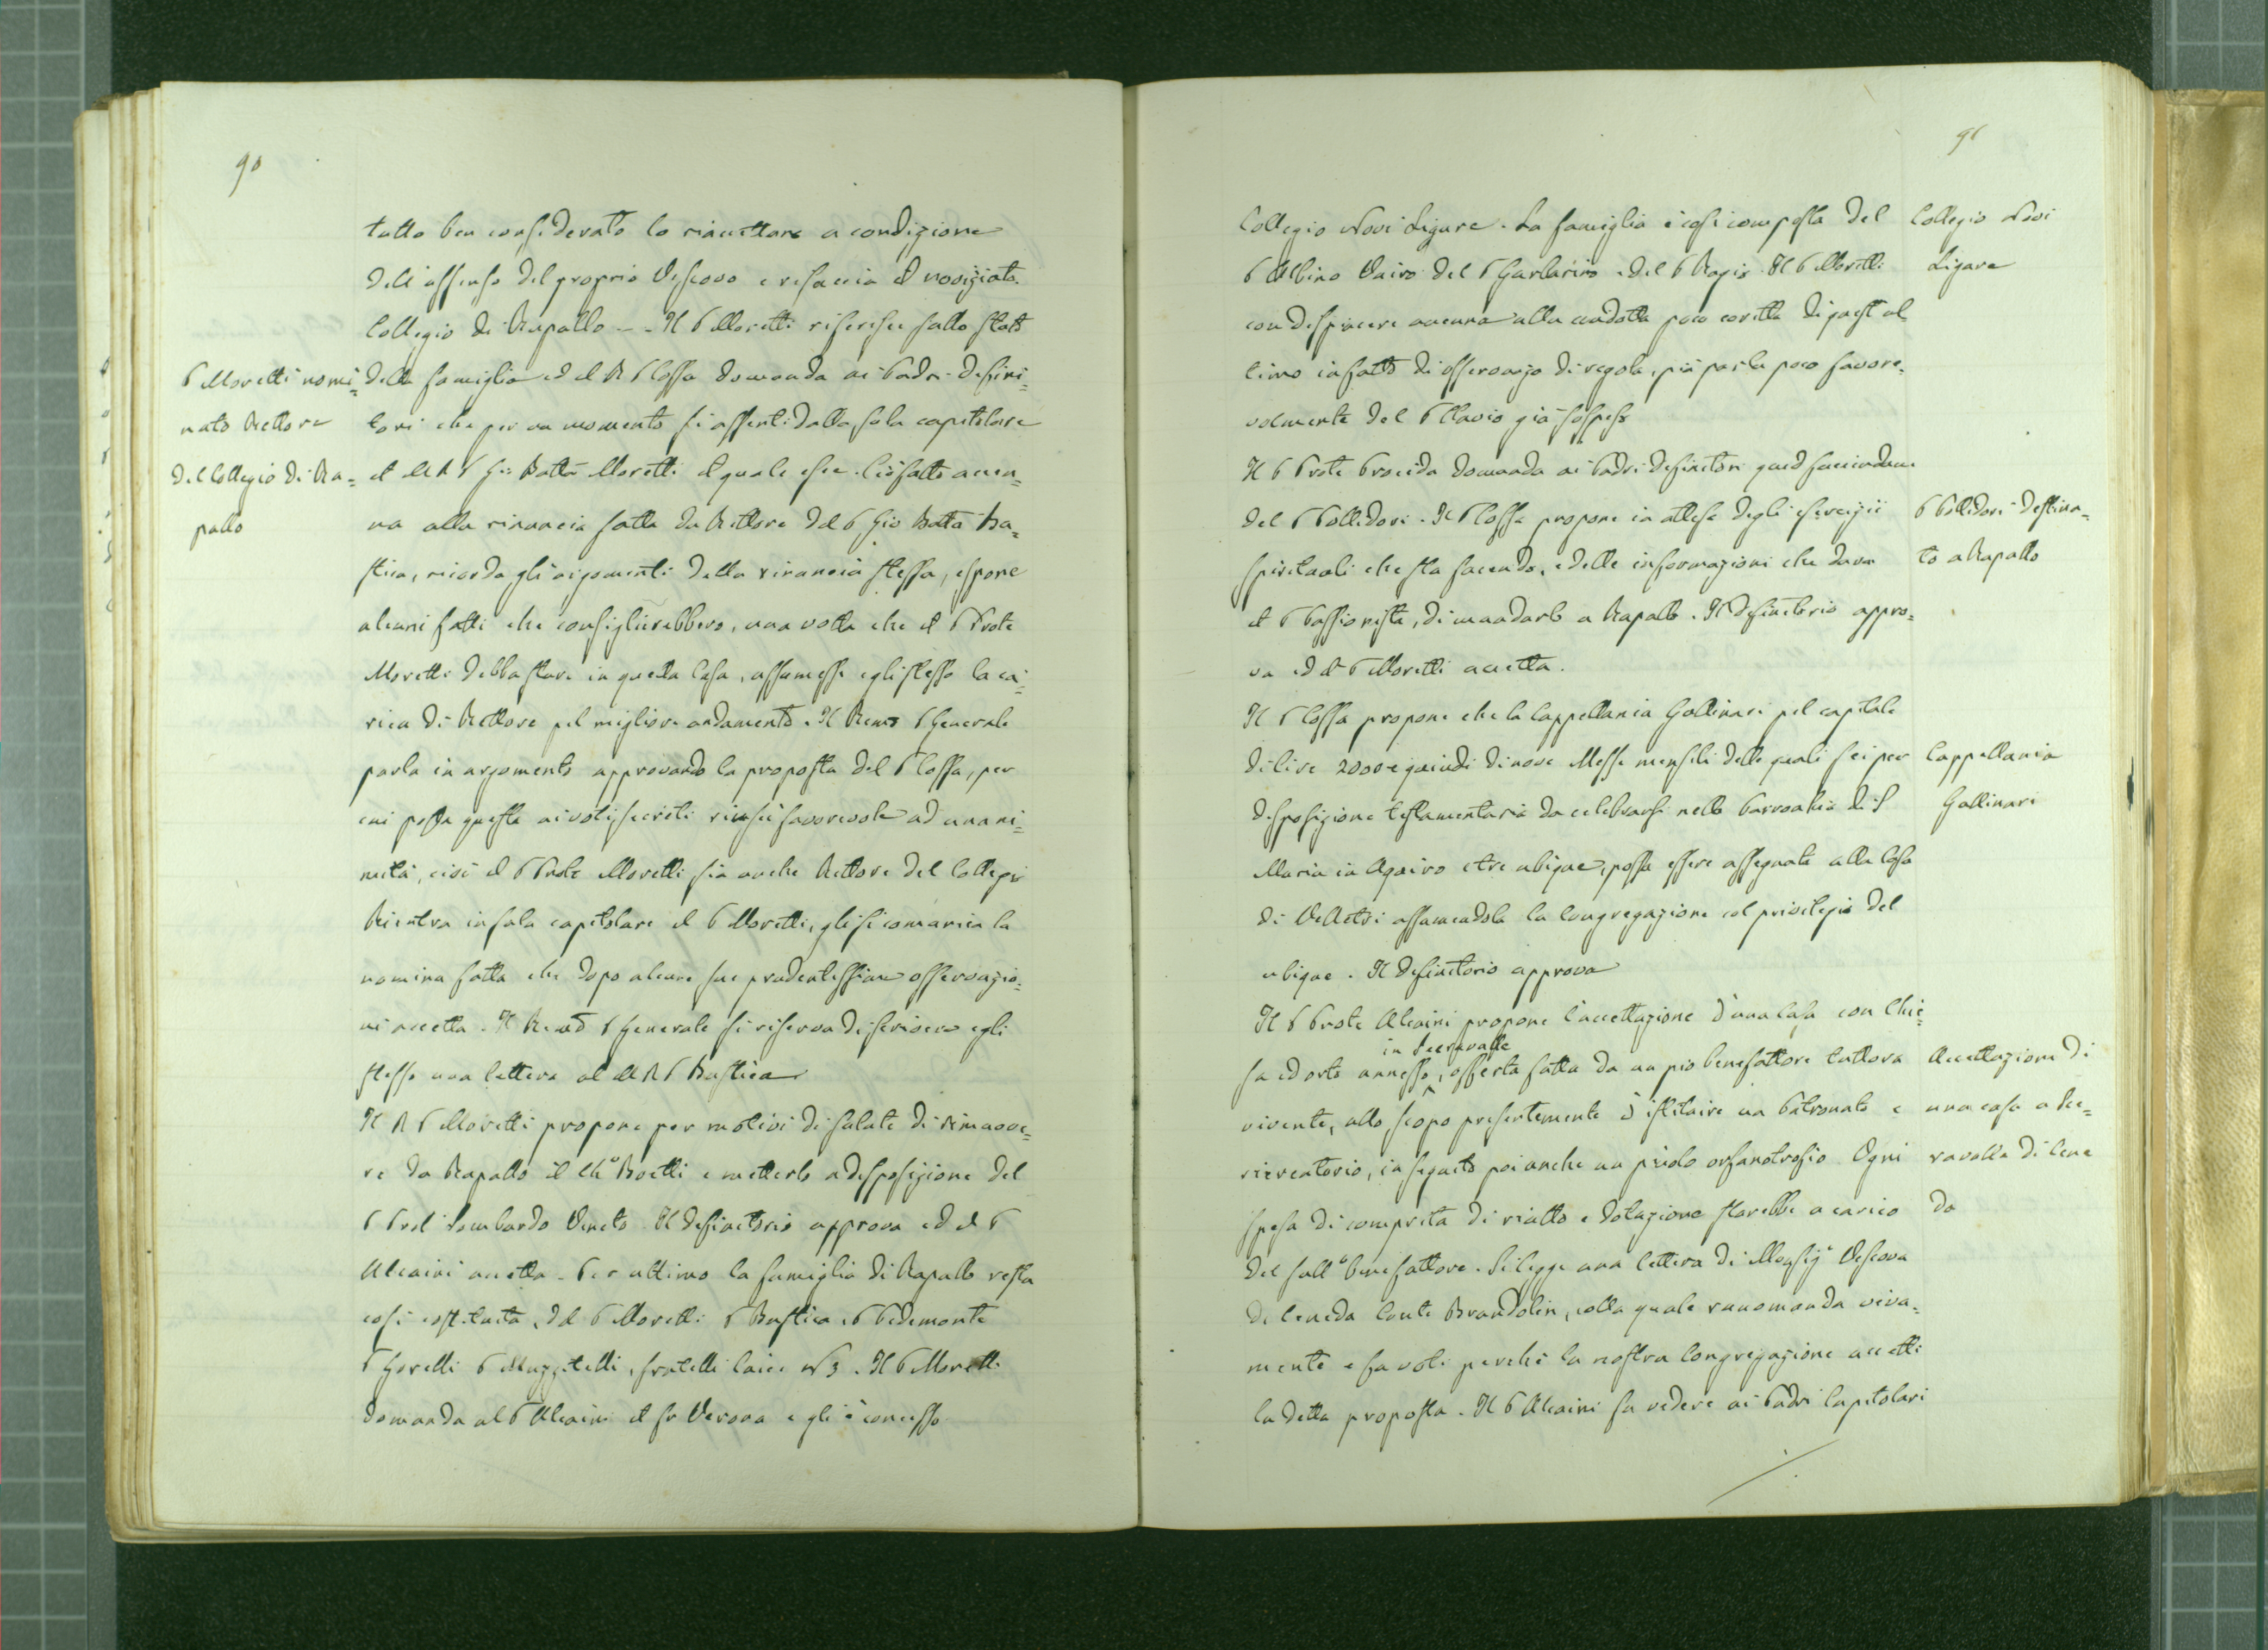 90
tutto ben considerato lo riaccettare a condizione
dell'assenso del proprio Vescovo e rifaccia il noviziato.
Collegio di Rapallo -- Il P Moretti riferisce sullo stato
P Moretti nomi=
nato Rettore
del Collegio di Ra=
pallo
della famiglia ed il R P Cossa domanda ai Padri Defini=
tori che per un momento si assenti dalla sala capitolare
il M R P Gio Batta Moretti il quale esce. Ciò fatto accen=
na alla rinuncia fatta da Rettore del P Gio Batta Ra=
stica, ricorda gli argomenti della rinuncia stessa, espone
alcuni fatti che consiglierebbero, una volta che il P Prole
Moretti debba stare in quella Casa, assumesse egli stesso la ca=
rica di Rettore pel migliore andamento. Il Remo P Generale
parla in argomento approvando la proposta del P Cossa, per
cui posta questa ai voti secreti riuscì favorevole ad unani=
mità, cioè il P Prole Moretti sia anche Rettore del Collegio
Rientra in sala capitolare il P Moretti, gli si comunica la
nomina fatta che dopo alcune sue prudentissime osservazio=
ni accetta. Il Remo P Generale si riserva di scrivere egli
stesso una lettera al M R P Rustica
Il R P Moretti propone per motivi di salute di rimuove=
re da Rapallo il Ch.º Boetti e metterlo a disposizione del
P Prole Lombardo Veneto. Il definitorio approva ed il P
Alcaini accetta. Per ultimo la famiglia di Rapallo resta
così costituita, del P Moretti P Rustica P Pedemonte
P Gorelli P Muzzitelli, fratelli laici N 3. Il P Moretti
domanda al P Alcaini il fr Verona e gli è concesso
91
Collegio Novi Ligure. La famiglia è così composta del
Collegio Novi
Ligure
P Albino Vairo del P Garbarino e del P Ragis. Il P Moretti
con dispiacere accenna alla condotta poco coretta di quest'ul
timo in fatto di osservanza di regola, più parla poco favore=
volmente del P Clavio già sospeso
Il P Prole Procida domanda ai Padri definitori quid faciendum
del P Pollidori. Il P Cossa propone in attesa degli esercizii
P Pollidori destina=
to a Rapallo
spirituali che sta facendo, e delle informazioni che darà
il P Passionista, di mandarlo a Rapallo. Il definitorio appro=
va ed il P Moretti accetta.
Il P Cossa propone che la Cappellania Gallinari pel capitale
di lire 2000 e quindi di nove Messe mensili delle quali sei per
Cappellania
Gallinari
disposizione testamentaria da celebrarsi nella Parrochia di S
Maria in Aquiro e tre ubique, possa essere assegnata alla Casa
di Velletri assumendola la Congregazione col privilegio del
ubique. Il definitorio approva
Il P Prole Alcaini propone l'accettazione d'una Casa con Chie=
in Serravalle
sa ed orto annesso, offerta fatta da un pio benefattore tuttora
Accettazione di
una casa a Ser=
ravalle di Cene
da
vivente, allo scopo presentemente d'istituire un Patronato e
ricreatorio, in seguito poi anche un picolo orfanotrofio. Ogni
spesa di comprita di riatto e dotazione starebbe a carico
del sull.º benefattore. Si legge una lettera di Monsig.r Vescovo
di Ceneda Conte Brandolin, colla quale raccomanda viva=
mente e fa voti perchè la nostra Congregazione accetti
la detta proposta. Il P Alcaini fa vedere ai Padri Capitolari